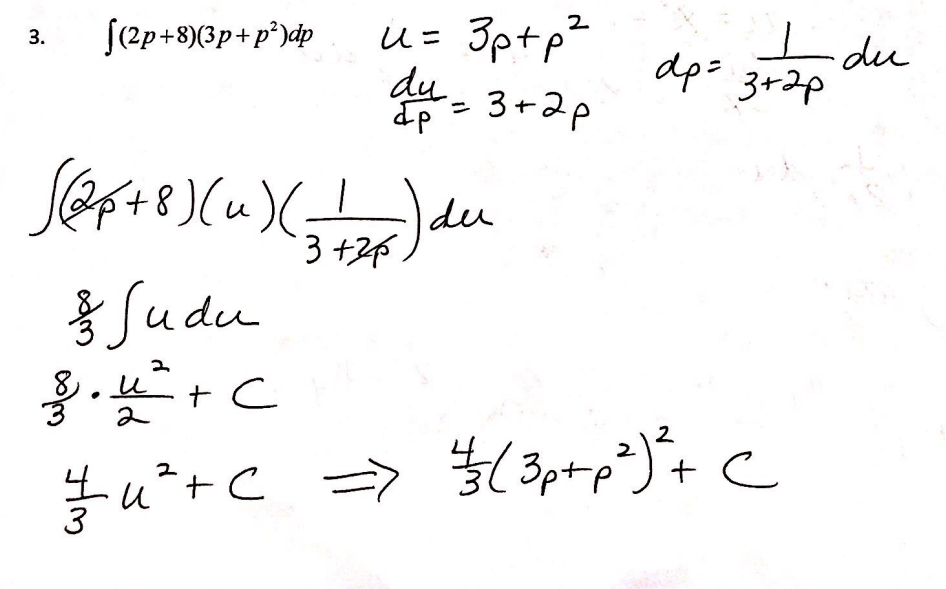 3. ∫(2p+8)(3p+p²)dp
u = 3p+p²
du/dp = 3+2p
dp = 1/(3+2p) du
∫(2p+8)(u)(1/(3+2p)) du
8/3 ∫u du
8/3 · u²/2 + C
4/3 u² + C ⇒ 4/3(3p+p²)² + C